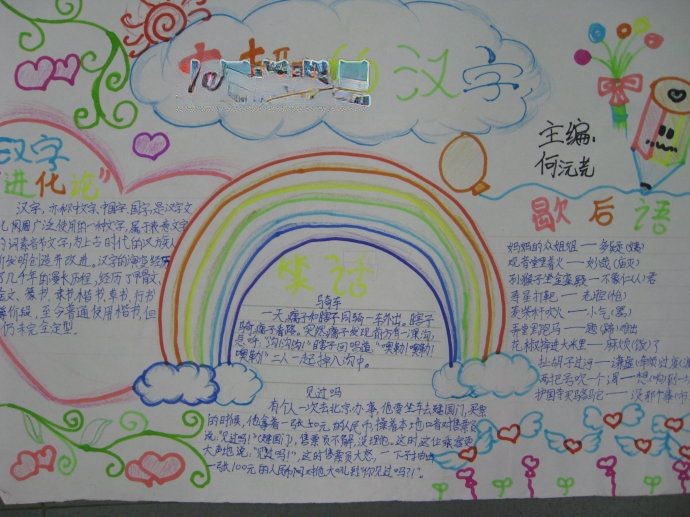 的汉字
主编:
汉字
"进化论"
汉字,亦称中文字、中国字、国字,是汉字文
化圈广泛使用的一种文字,属于表意文字
的词素音节文字,为上古时代的汉族人
所发明创造并改进。汉字的演变经历
了几千年的漫长历程,经历了甲骨文、
金文、篆书、隶书、楷书、草书、行书
等阶段,至今普通使用楷书,但
仍未完全定型。
笑话
马骑车
一天,瘸子和瞎子同骑一车外出。瞎子
骑,瘸子看路。突然,瘸子发现前方有一深沟,
急呼:"沟!沟!沟!"瞎子回唱道:"噢勒!噢勒!噢
勒!"二人一起掉入沟中。
见过吗
有个人一次去北京办事,他要坐车去建国门,买票
的时候,他拿着一张十元的人民币,操着本地口音对售票员
说:"见过吗!"(建国门),售票员不解,没理他。这时这位乘客更
大声地说:"见过吗!",这时售票员大怒,一下子抽出
一张100元的人民币向对他大吼到:"你见过吗?!"。
歇后语
妈妈的众姐妹——多姨(疑)
观音堂里着火——妙哉(庙灾)
孙猴子坐金銮殿——不像仁(人)君
寿星打跑——毛腔(枪)
荧柴杆吹火——小气(器)
弄堂里跑马——题(蹄)难出
花椒掉进大米里——麻烦(饭)了
扯胡子过河——谦虚(牵须)过渡(度)
两把号吹一个调——想(响)到一
护国寺买骆驼——没那个事(市)